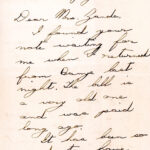 Dear Mrs
I found your
note waiting for
me when I returned
from Camp last
night. The bill is
a very old one
and was paid
long ago.
It has been so